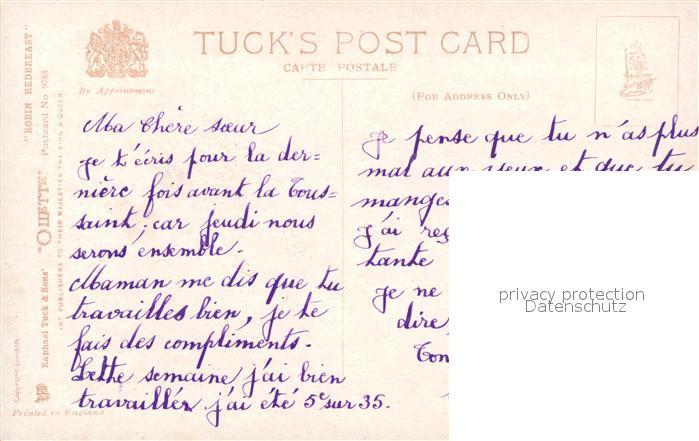 TUCK'S POST CARD
CARTE POSTALE
By Appointment
(FOR ADDRESS ONLY)
"ROBIN REDBREAST"
Postcard No 9783
Raphael Tuck & Sons' "OILETTE"
ART PUBLISHERS TO THEIR MAJESTIES THE KING & QUEEN.
Copyright London
Printed in England
Ma Chère sœur
je t'écris pour la der=
nière fois avant la Tous=
saint; car jeudi nous
serons ensemble.
Maman me dis que tu
travailles bien, je te
fais des compliments.
Cette semaine j'ai bien
travailler j'ai été 5e sur 35.
Je pense que tu n'as plus
mal aux yeux et que tu
mange
J'ai re
tante
je ne
dire,
Ton
privacy protection
Datenschutz